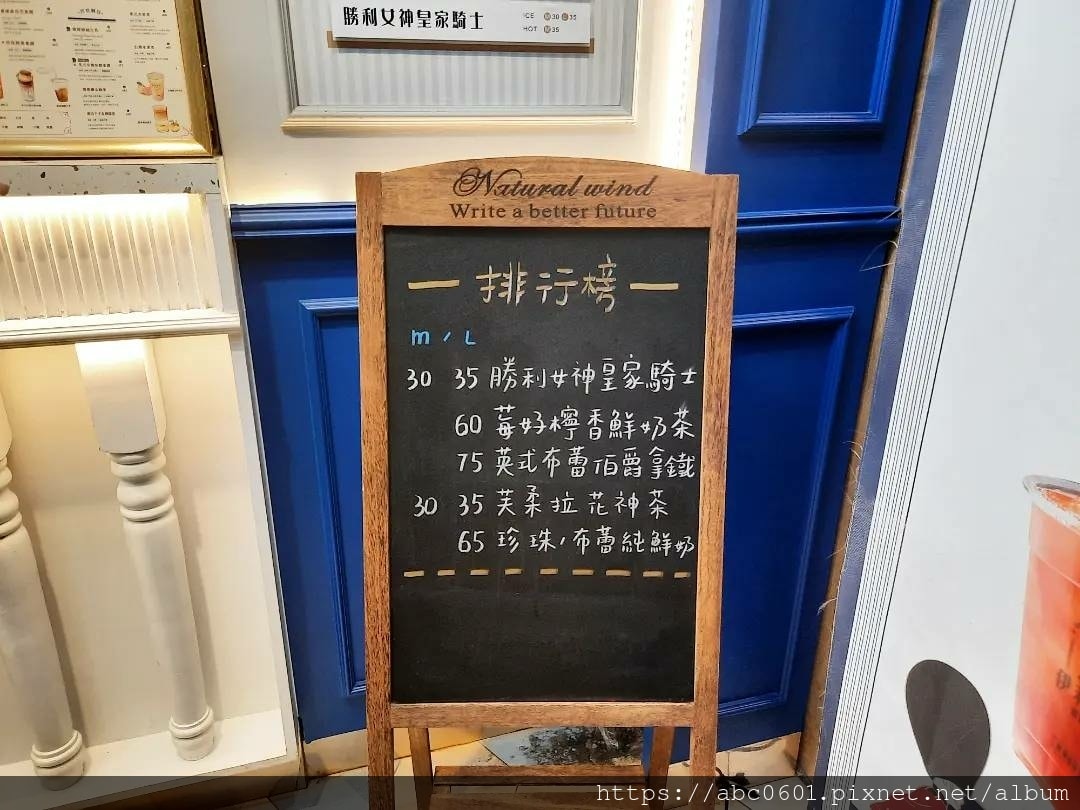 勝利女神皇家騎士
ICE M30 L35
HOT M35
Natural wind
Write a better future
排行榜
m / L
30 35 勝利女神皇家騎士
60 莓好檸香鮮奶茶
75 英式布蕾伯爵拿鐵
30 35 芙柔拉花神茶
65 珍珠/布蕾純鮮奶
https://abc0601.pixnet.net/album